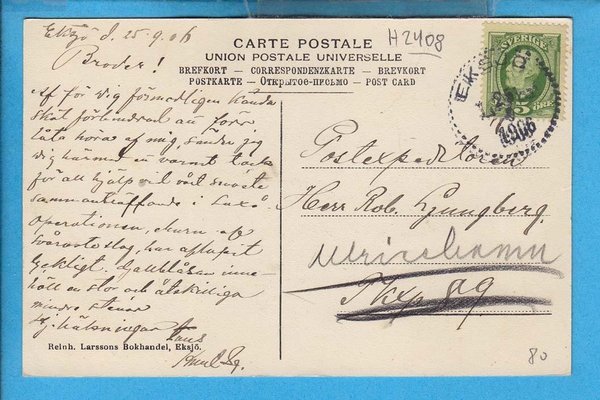 Eksjö d. 25.9.06
Broder!
Af för dig förmodligen kända
skäl förhindrad att förr
låta höra af mig, sänder jag
dig härmed en varmt tack
för all hjälp vid vårt
sammanträffande i
Operationen, ehuru af
svåraste slag, har aflupit
lyckligt. Gallblåsan inne-
höll en stor och åtskilliga
mindre stenar
Hj. hälsningar
CARTE POSTALE
UNION POSTALE UNIVERSELLE
BREFKORT - CORRESPONDENZKARTE - BREVKORT
POSTKARTE - Открытое-письмо - POST CARD
H2408
SVERIGE
5 ÖRE
EKSJÖ
25
1906
Postexpeditören
Herr Rob. Ljungberg.
Ulricehamn
Pkxp 89
80
Reinh. Larssons Bokhandel, Eksjö.